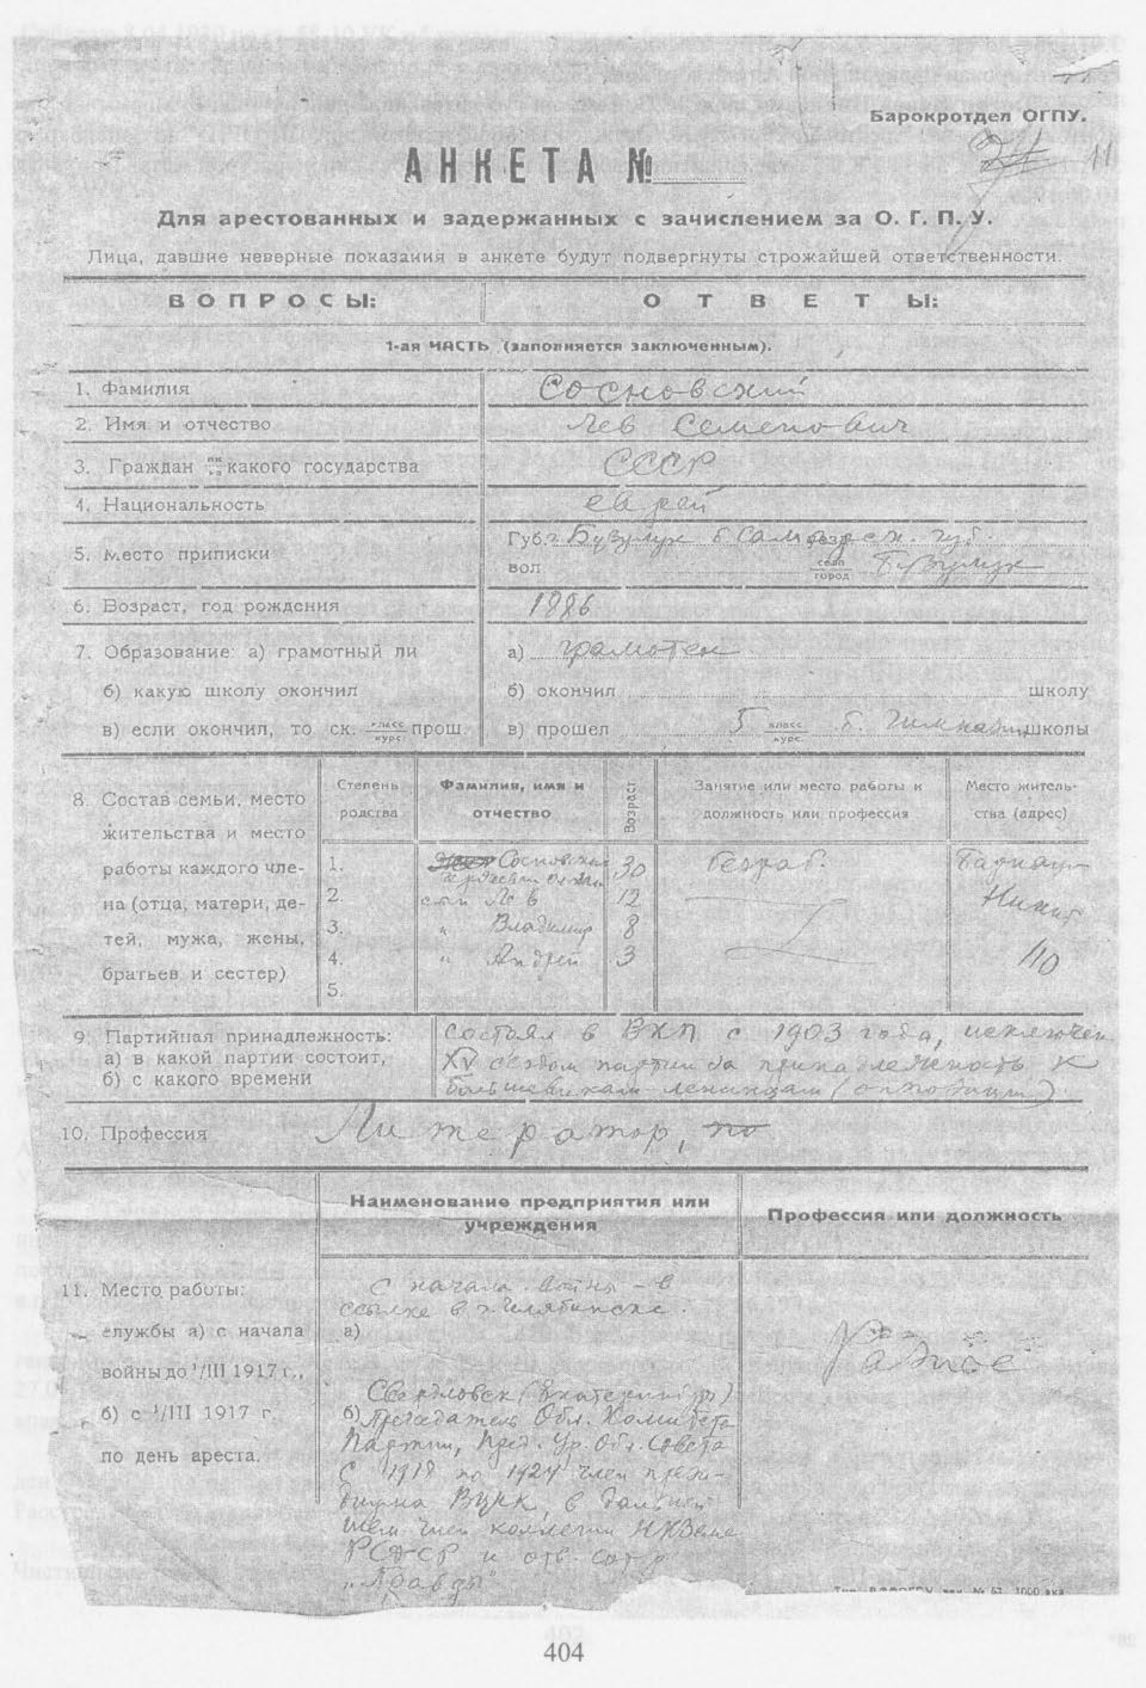 Барокротдел ОГПУ.
24 11
АНКЕТА №
Для арестованных и задержанных с зачислением за О. Г. П. У.
Лица, давшие неверные показания в анкете будут подвергнуты строжайшей ответственности.
ВОПРОСЫ: ОТВЕТЫ:
1-ая ЧАСТЬ (заполняется заключенным).
1. Фамилия Сосновский
2. Имя и отчество Лев Семенович
3. Граждан какого государства СССР
4. Национальность еврей
5. Место приписки Губ. г. Бузулук б. Самарск. губ.
вол село город Бузулук
6. Возраст, год рождения 1886
7. Образование: а) грамотный ли а) грамотен
б) какую школу окончил б) окончил школу
в) если окончил, то ск. класс курс прош. в) прошел 5 класс курс б. Гимназии школы
8. Состав семьи, место жительства и место работы каждого члена (отца, матери, детей, мужа, жены, братьев и сестер)
Степень родства Фамилия, имя и отчество Возраст Занятие или место работы и должность или профессия Место жительства (адрес)
1. Сосновская 30 безраб. Барнаул
2. сын Лев 12
3. " Владимир 8
4. " Андрей 3 110
5.
9. Партийная принадлежность: состоял в ВКП с 1903 года, исключен
а) в какой партии состоит, XV съездом партии за принадлежность к
б) с какого времени большевикам-ленинцам (оппозиции)
10. Профессия Литератор, по
Наименование предприятия или учреждения Профессия или должность
11. Место работы: с начала войны - в
ссылке в г. Челябинске.
службы а) с начала а)
войны до 1/III 1917 г.,
Свердловск (Екатеринбург)
б) с 1/III 1917 г. б) Председатель Обл. Комитета
Партии, Пред. Ур. Обл. Совета
по день ареста. с 1918 по 1924 член прези-
диума ВЦИК, в дальней-
шем член коллегии НКЗема
РСФСР и отв. сотр.
„Правды"
404